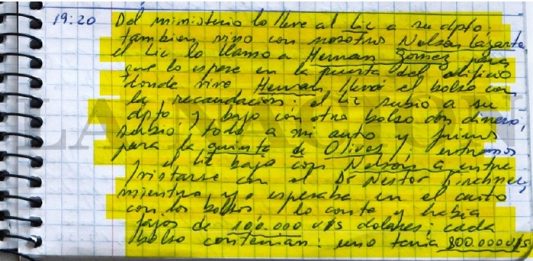 19:20 Del ministerio lo lleve al Lic a su dpto,
tambien vino con nosotros Nelson Lazarte
el Lic lo llamo a Hernan Gomez para
que lo espere en la puerta del edificio
donde vive Hernan llevó el bolso con
la recaudacion; el Lic subio a su
dpto y bajo con otro bolso con dinero,
subio todo a mi auto y fuimos
para la quinta de Olivos y entramos
y el Lic bajo con Nelson a entre
vistarse con el Dr Nestor Kirchner,
mientras yo esperaba en el auto
con los bolsos, lo conte y habia
fajos de 100.000 U$S dolares, cada
bolso contenian: uno tenia 800.000 U$S
LA NACION